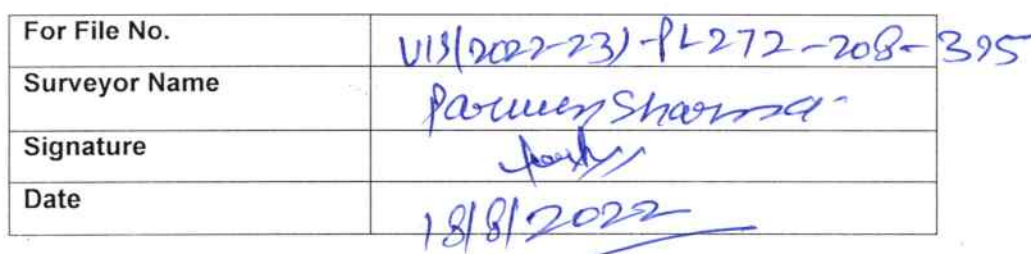 For File No. VIS(2022-23)-PL272-208-395
Surveyor Name Parveen Sharma
Signature
Date 18/8/2022